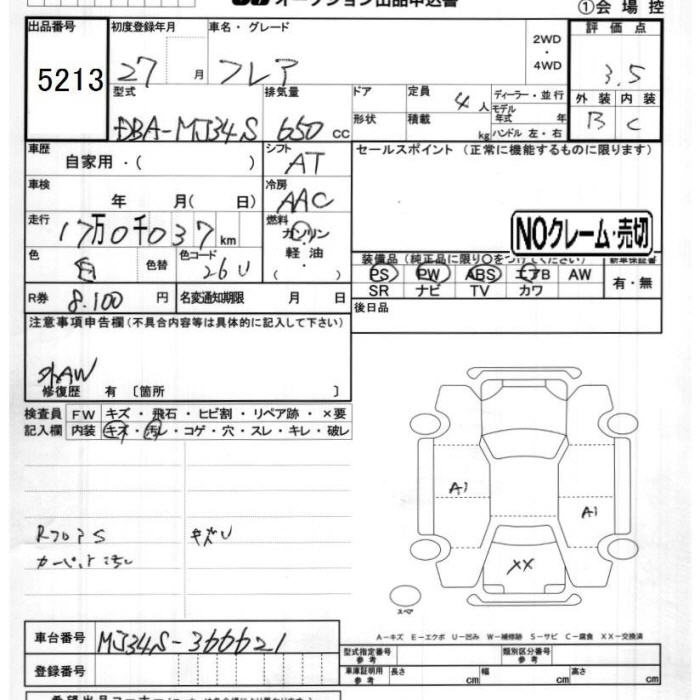 オークション出品申込書
①会場控
出品番号 初度登録年月 車名・グレード 評価点
5213 27 月 フレア 2WD・4WD 3.5
型式 排気量 ドア 定員 4人 ディーラー・並行 外装 内装
DBA-MJ34S 650cc 形状 積載 kg モデル年式 年 ハンドル 左・右 B C
車歴 シフト セールスポイント (正常に機能するものに限ります)
自家用・( ) AT
車検 冷房
年 月( 日) AAC
走行 燃料
17万0千037km ガソリン NOクレーム・売切
軽油
( )
色 色替 色コード 装備品(純正品に限り○をつけてください) 新車保証書
白 26U PS PW ABS エアB AW 有・無
SR ナビ TV カワ
R券 8.100円 名変通知期限 月 日 後日品
注意事項申告欄(不具合内容等は具体的に記入して下さい)
外AW
修復歴 有 〔箇所 〕
検査員 FW キズ・飛石・ヒビ割・リペア跡・×要
記入欄 内装 キズ・汚レ・コゲ・穴・スレ・キレ・破レ
A1
A1
RフロアS キズU
カーペット汚レ
XX
スペア
A-キズ E-エクボ U-凹み W-補修跡 S-サビ C-腐食 XX-交換済
車台番号 MJ34S-366621
型式指定番号 参考 類別区分番号 参考
登録番号 車庫証明用 参考 長さ cm 幅 cm 高さ cm